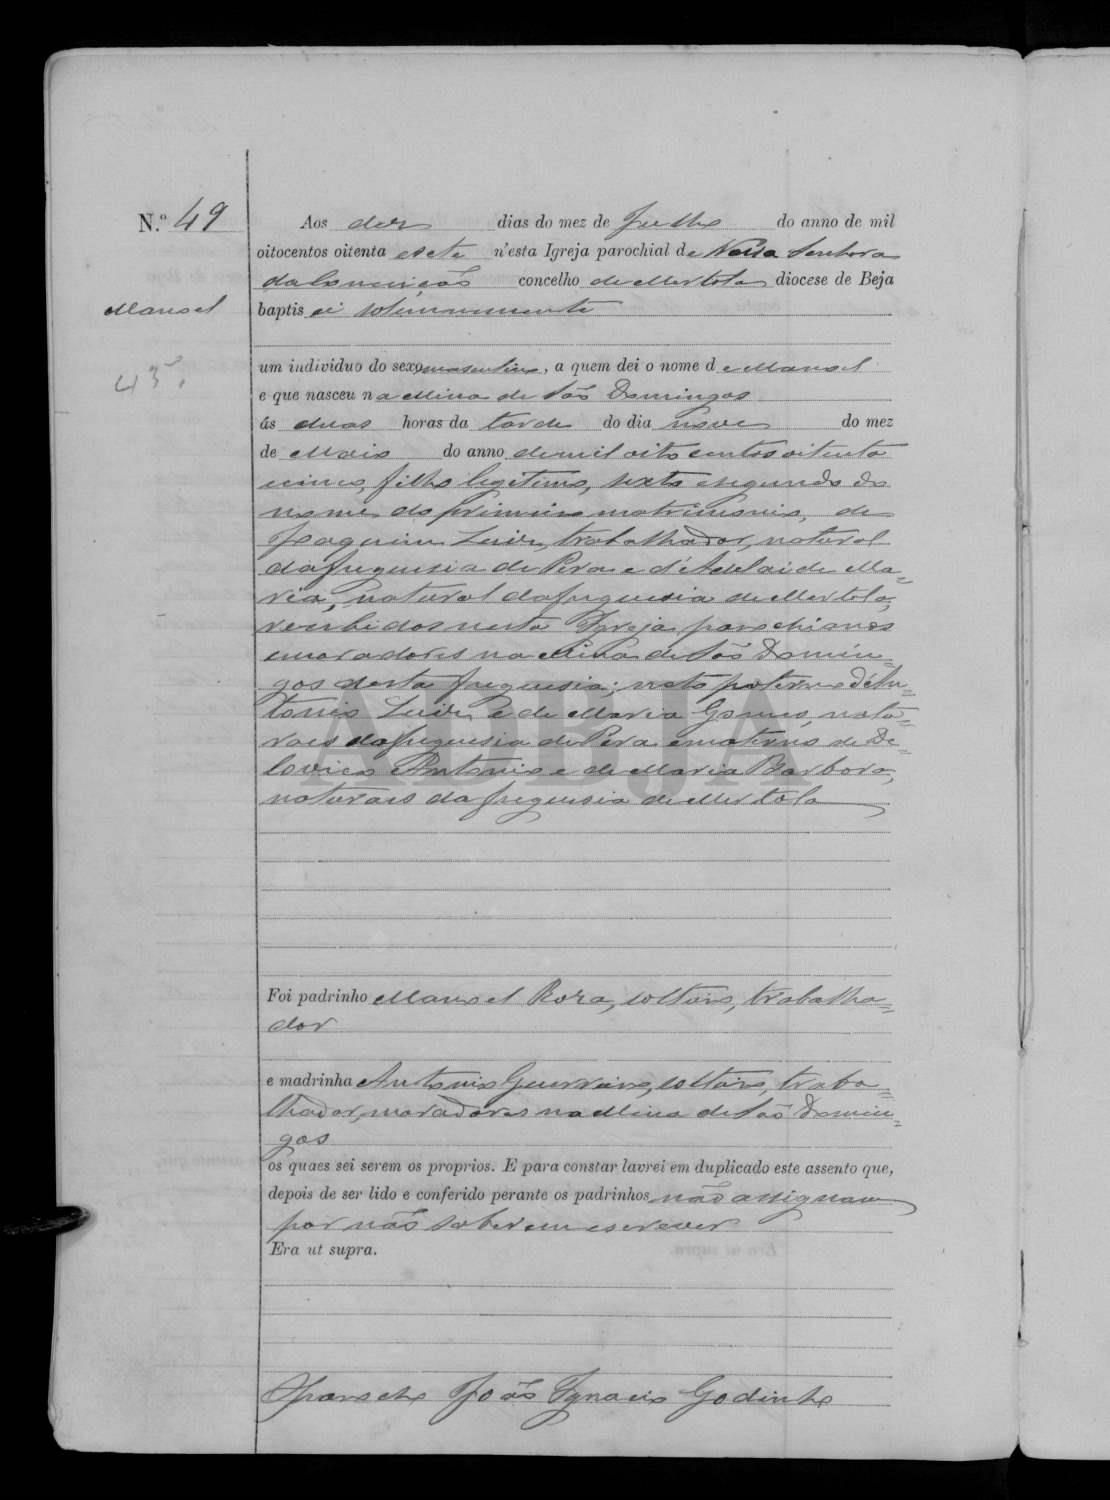 N.º 49
Aos dez dias do mez de Julho do anno de mil
oitocentos oitenta e sete n'esta Igreja parochial de Nossa Senhora
da Conceição concelho de Mertola diocese de Beja
Manoel
baptisei solemnemente
um individuo do sexo masculino, a quem dei o nome de Manoel
43
e que nasceu na Mina de São Domingos
ás duas horas da tarde do dia nove do mez
de Maio do anno de mil oito centos oitenta
e cinco, filho legitimo, sexto e segundo do
nome do primeiro matrimonio, de
Joaquim Luiz, trabalhador, natural
da freguesia de Pera e d'Adelaide Ma=
ria, natural da freguesia de Mertola,
recebidos nesta Igreja, parochianos
e moradores na Mina de São Domin=
gos desta freguesia; neto paterno d'An=
tonio Luiz e de Maria Gomes, natu=
raes da freguesia de Pera e materno de
Antonio e de Maria Barbora,
naturaes da freguesia de Mertola
ADBJA
Foi padrinho Manoel Roza, solteiro, trabalha=
dor
e madrinha Antonio Guerreiro, solteiro, traba=
lhador, moradores na Mina de São Domin=
gos
os quaes sei serem os proprios. E para constar lavrei em duplicado este assento que,
depois de ser lido e conferido perante os padrinhos não assignam
por não saberem escrever
Era ut supra.
O Parocho João Ignacio Godinho